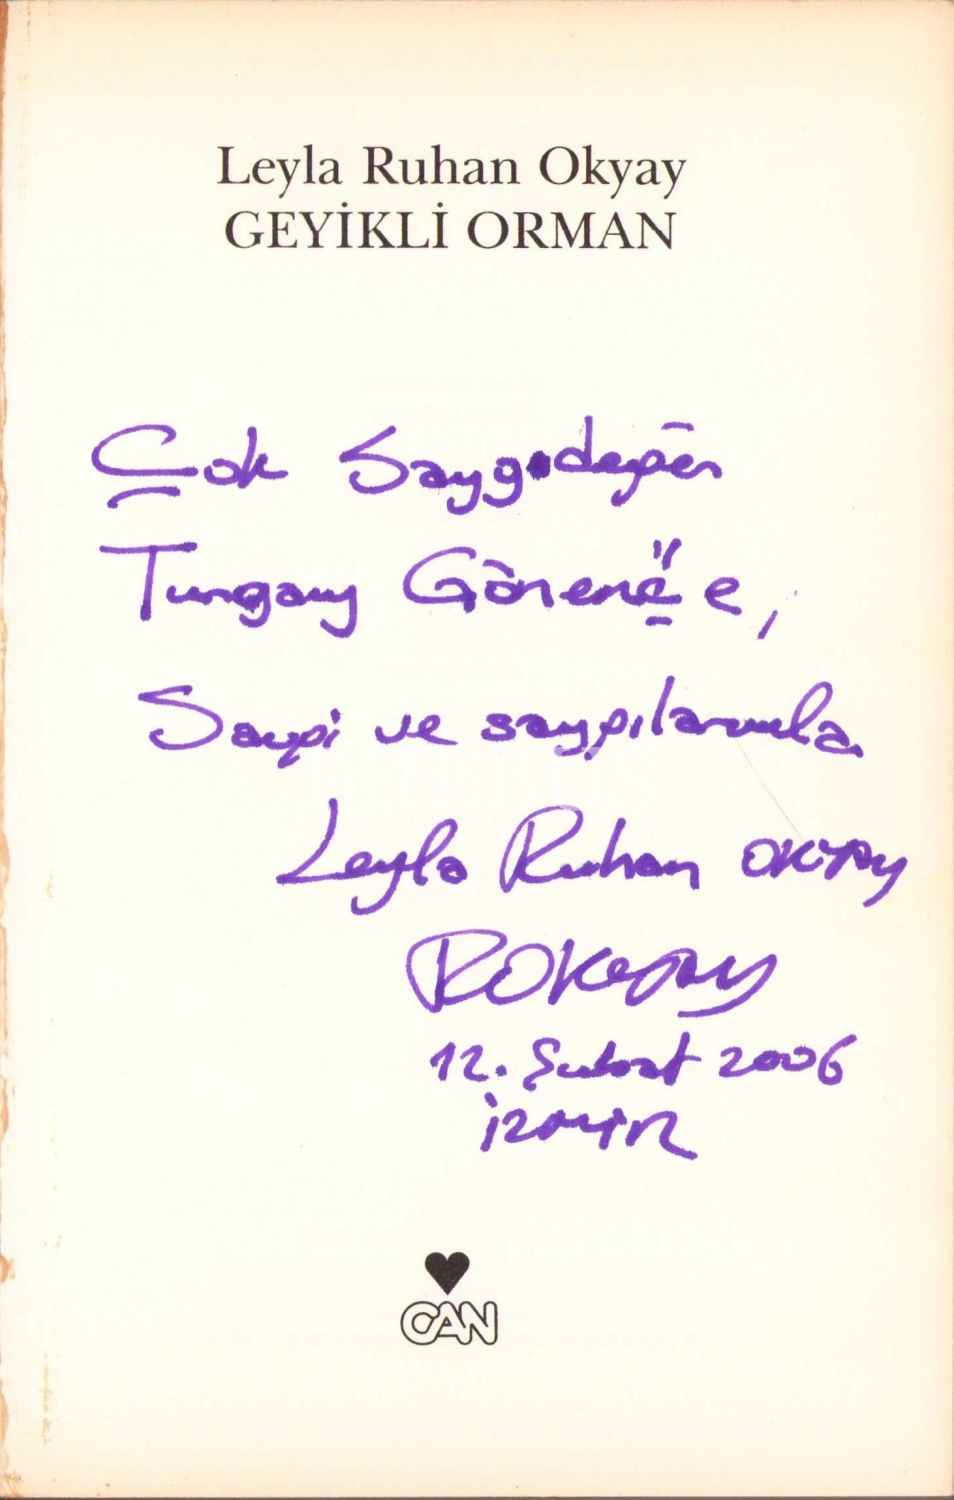 Leyla Ruhan Okyay
GEYİKLİ ORMAN
Çok Saygıdeğer
Tungay Gören'e,
Saygı ve saygılarımla
Leyla Ruhan OKYAY
ROKYAY
12. Şubat 2006
İZMİR
CAN